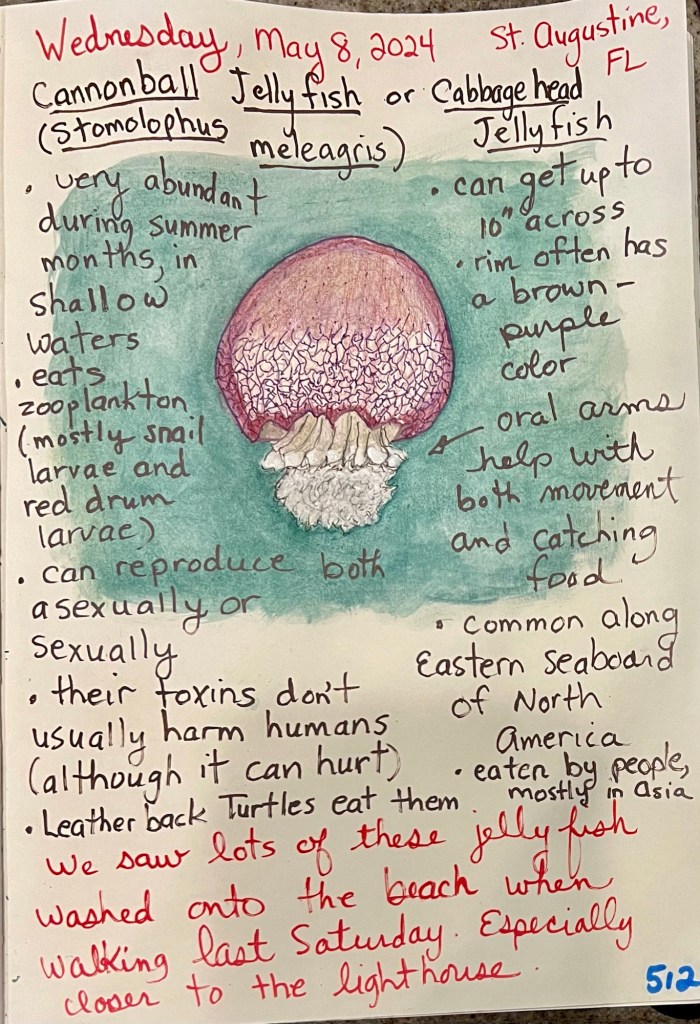 Wednesday, May 8, 2024
St. Augustine,
FL
Cannonball Jellyfish or Cabbagehead
(Stomolophus meleagris) Jellyfish
• very abundant
during summer
months, in
shallow
waters
• eats
zooplankton
(mostly snail
larvae and
red drum
larvae)
• can reproduce both
asexually or
sexually
• their toxins don't
usually harm humans
(although it can hurt)
• Leatherback Turtles eat them
• can get up to
10" across
• rim often has
a brown-
purple
color
oral arms
help with
both movement
and catching
food
• common along
Eastern Seaboard
of North
America
• eaten by people,
mostly in Asia
We saw lots of these jellyfish
washed onto the beach when
walking last Saturday. Especially
closer to the lighthouse.
512